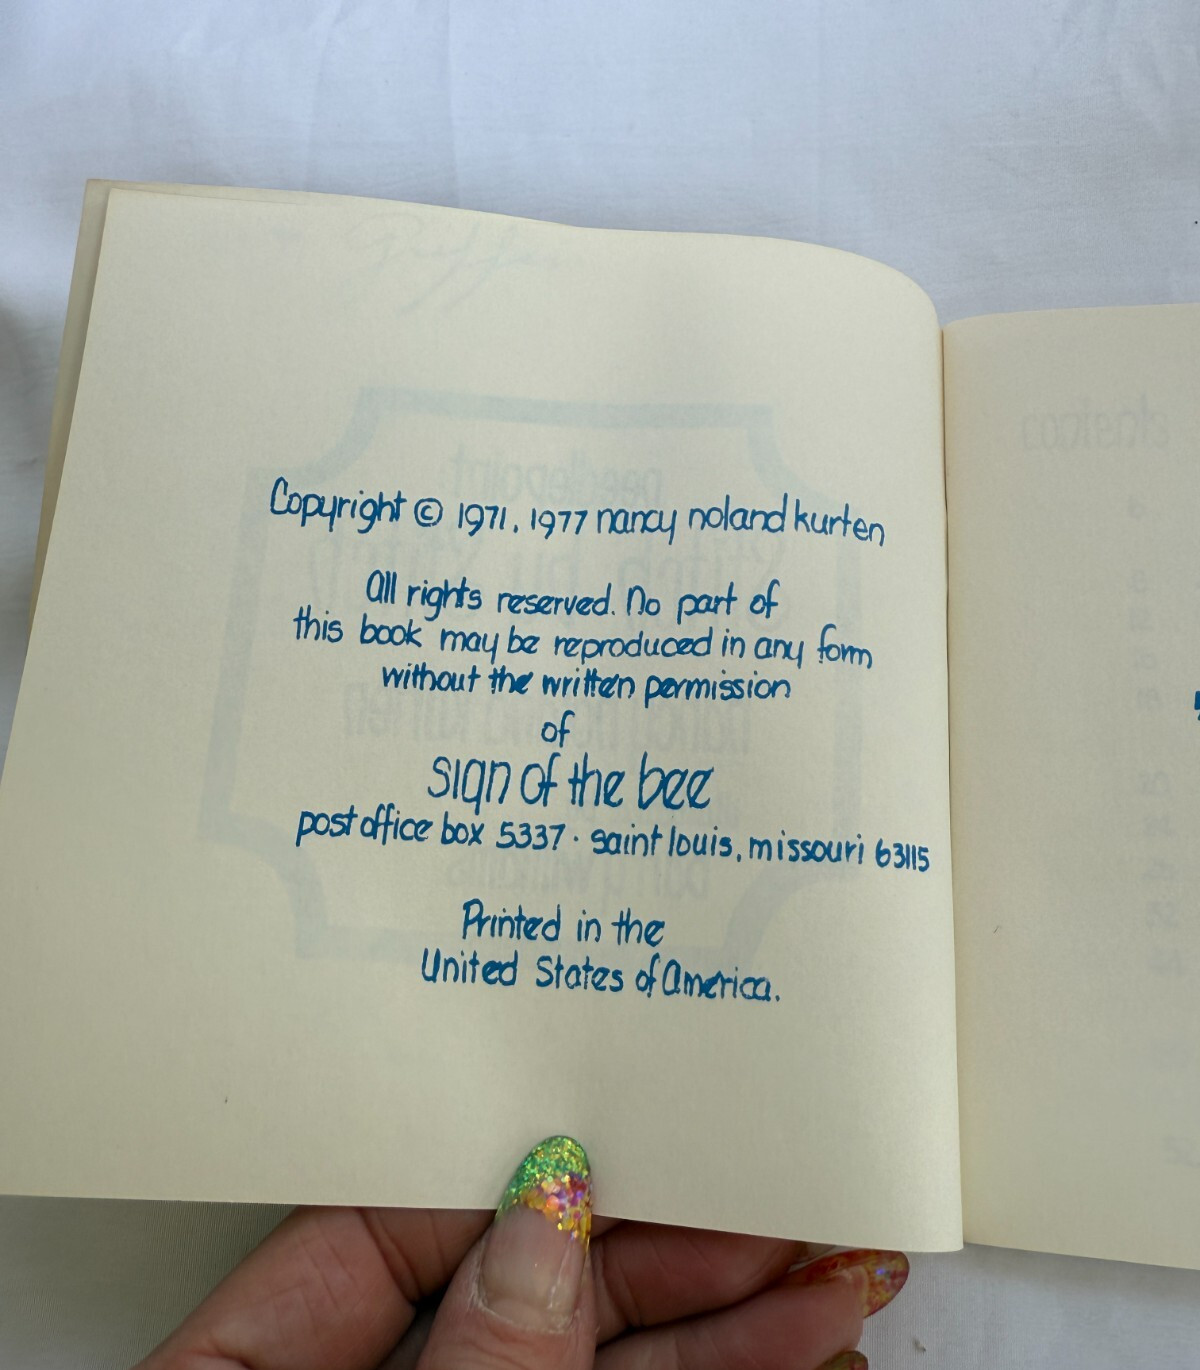 Copyright © 1971, 1977 nancy noland kurten
All rights reserved. No part of
this book may be reproduced in any form
without the written permission
of
sign of the bee
post office box 5337 · saint louis, missouri 63115
Printed in the
United States of America.